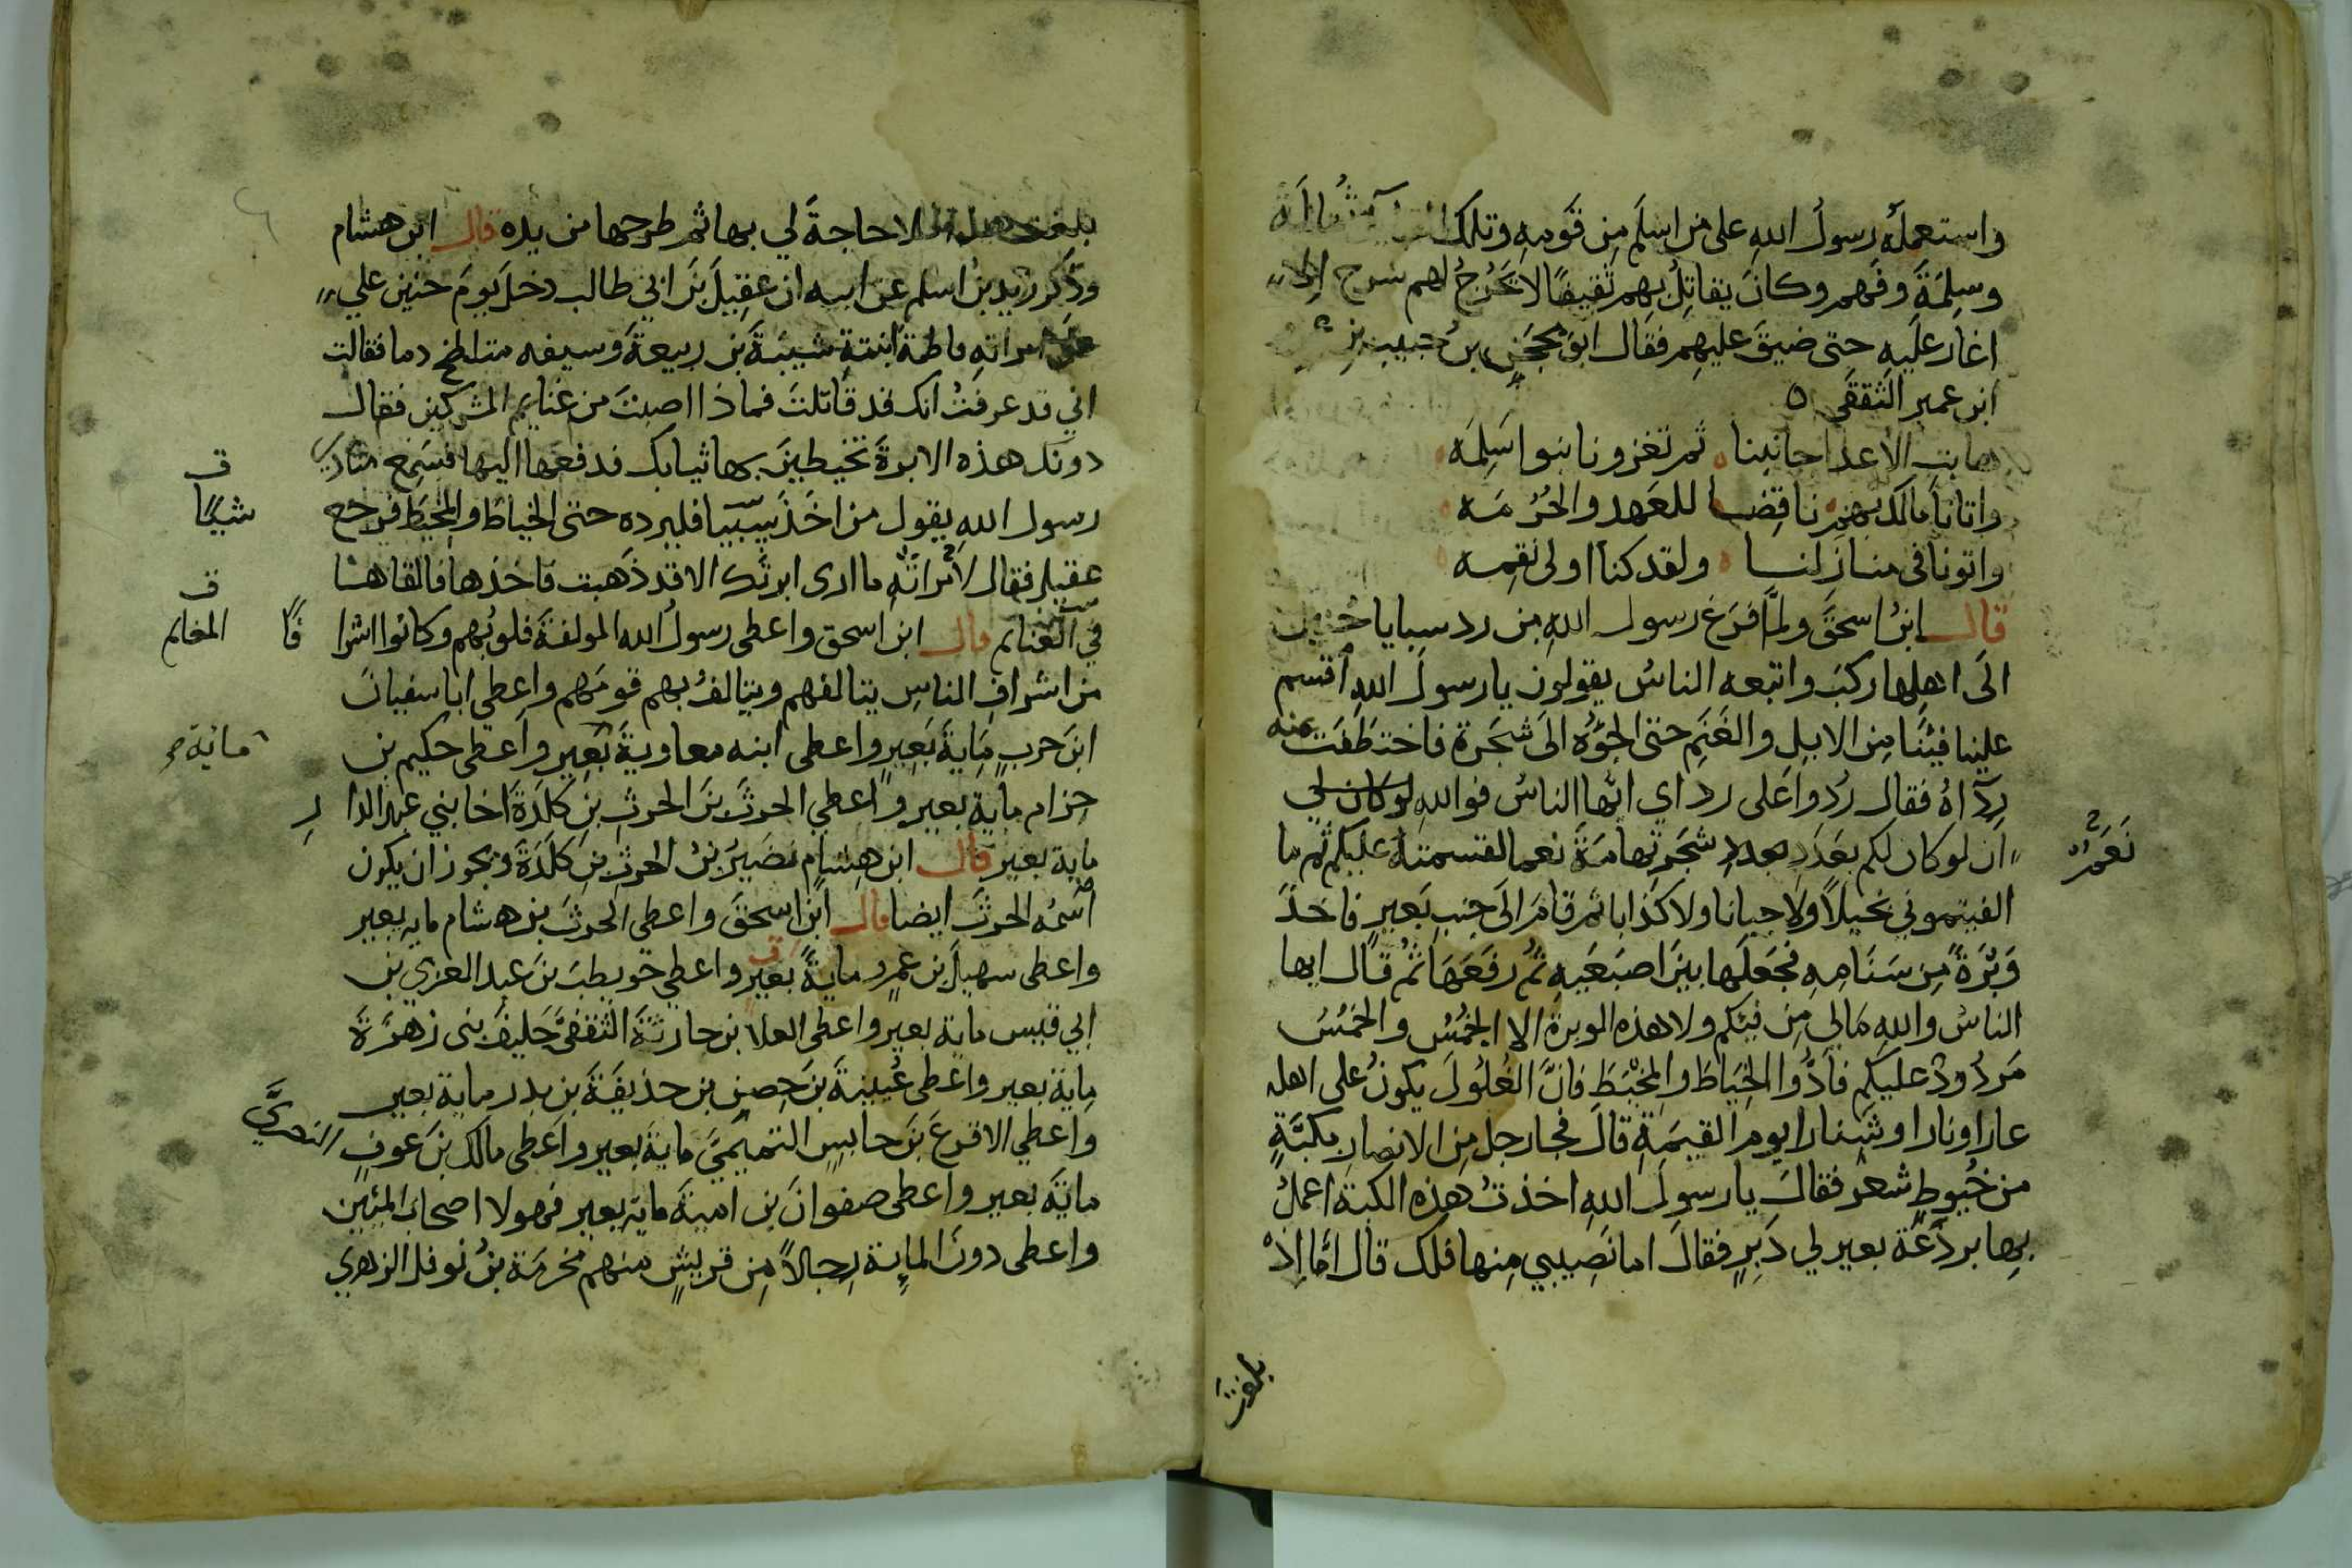 واستعمله رسول الله على من اسلم من قومه وتلك ثمالة
وسلمة وفهم وكان يقاتل بهم ثقيفا لا يخرج لهم سرح الا
اغار عليه حتى ضيق عليهم فقال ابو محجن بن حبيب بن
ابن عمير الثقفي ه
هابت الاعدا جانبنا ثم تغزونا بنوا سلمه
واتانا مالك بهم ناقضا للعهد والحرمه
واتونا في منازلنا ولقد كنا اولى نقمه
قال ابن اسحق ولما فرغ رسول الله من رد سبايا حنين
الى اهلها ركب واتبعه الناس يقولون يا رسول الله اقسم
علينا فيئنا من الابل والغنم حتى الجؤه الى شجرة فاختطفت عنه
رداه فقال ردوا على رداي ايها الناس فوالله لو كان لي
ان لو كان لكم بعدد شجر تهامة نعما لقسمته عليكم ثم ما
نعم
الفيتموني بخيلا ولا جبانا ولا كذابا ثم قام الى جنب بعير فاخذ
وبرة من سنامه فجعلها بين اصبعيه ثم رفعها ثم قال ايها
الناس والله مالي من فيئكم ولا هذه الوبرة الا الخمس والخمس
مردود عليكم فادوا الخياط والمخيط فان الغلول يكون على اهله
عارا ونارا وشنارا يوم القيمة قال فجا رجل من الانصار بكبة
من خيوط شعر فقال يا رسول الله اخذت هذه الكبة اعمل
بها بردعة بعير لي دبر فقال اما نصيبي منها فلك قال اما اذ
بلغت
بلغت هذا فلا حاجة لي بها ثم طرحها من يده قال ابن هشام
وذكر زيد بن اسلم عن ابيه ان عقيل بن ابي طالب دخل يوم حنين علي
امراته فاطمة ابنة شيبة بن ربيعة وسيفه متلطخ دما فقالت
اني قد عرفت انك قد قاتلت فماذا اصبت من غنايم المشركين فقال
دونك هذه الابرة تخيطين بها ثيابك فدفعها اليها فسمع منادي
رسول الله يقول من اخذ شييا فليرده حتى الخياط والمخيط فرجع
ف شيئا
عقيل فقال لامراته ما ارى ابرتك الا قد ذهبت فاخذها فالقاها
في الغنايم قال ابن اسحق واعطى رسول الله المولفة قلوبهم وكانوا اشرا فا
ف المغانم
من اشراف الناس يتالفهم ويتالف بهم قومهم واعطي ابا سفيان
ابن حرب ماية بعير واعطى ابنه معاوية بعير واعطى حكيم بن
ماية
حزام ماية بعير واعطي الحرث بن الحرث بن كلدة اخا بني عبد الدا ر
ماية بعير قال ابن هشام نصير بن الحرث بن كلدة ويجوز ان يكون
اسمه الحرث ايضا قال ابن اسحق واعطى الحرث بن هشام مايه بعير
واعطى سهيل بن عمرو ماية بعير واعطي حويطب بن عبد العزي بن
ابي قيس ماية بعير واعطى العلا بن حارثة الثقفي حليف بني زهرة
ماية بعير واعطى عيينة بن حصن بن حذيفة بن بدر ماية بعير
واعطي الاقرع بن حابس التميمي ماية بعير واعطى مالك بن عوف النصري
ماية بعير واعطى صفوان بن امية ماية بعير فهولا اصحاب المئين
واعطى دون الماية رجالا من قريش منهم مخرمة بن نوفل الزهري